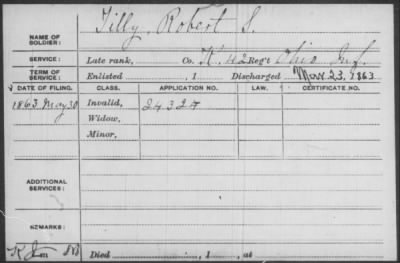 Tilly, Robert S.
NAME OF SOLDIER:
SERVICE: Late rank, Co. K. 42 Reg't Ohio Inf.
TERM OF SERVICE: Enlisted , 1 Discharged Mar 23, 1863
DATE OF FILING. CLASS. APPLICATION NO. LAW. CERTIFICATE NO.
1863 May 30 Invalid, 24324
Widow,
Minor,
ADDITIONAL SERVICES:
REMARKS:
Died , 1 , at